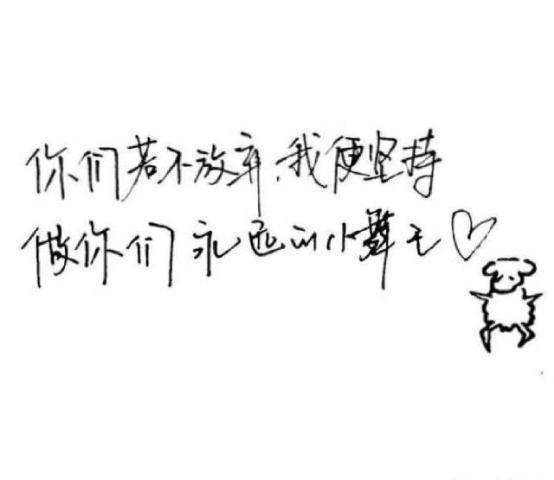 你们若不放弃,我便坚持
做你们永远的小舞王